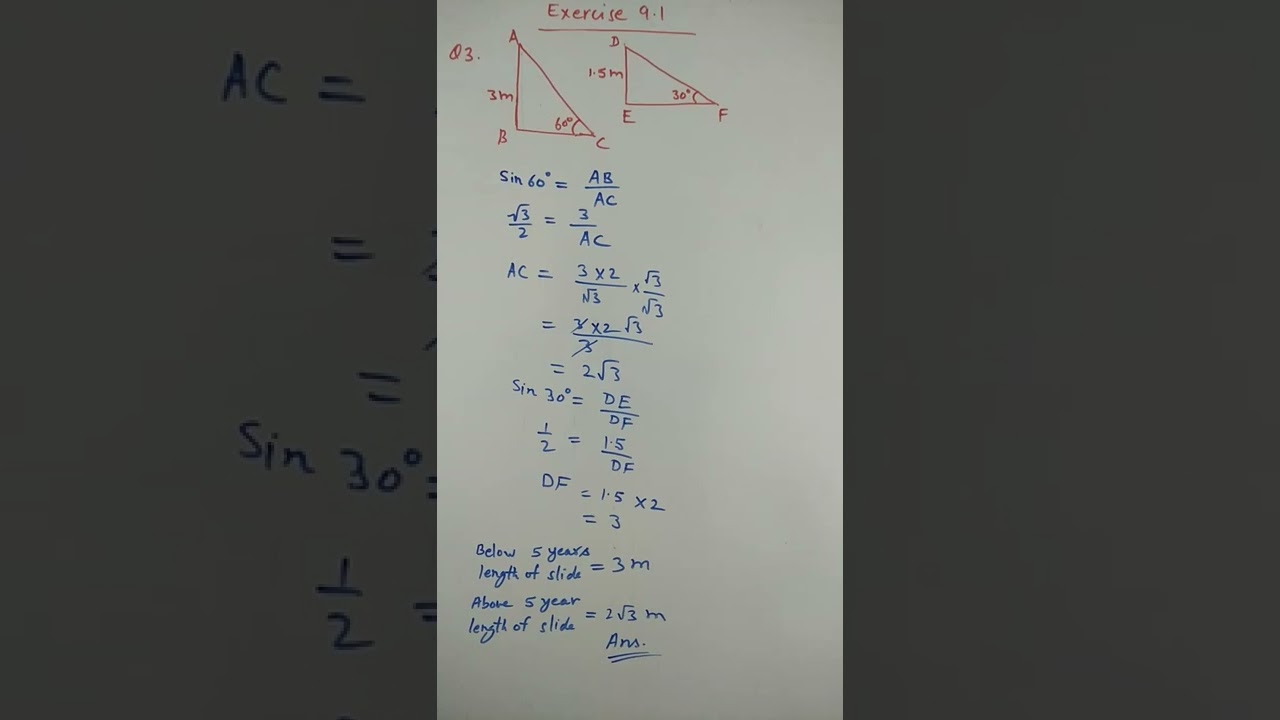 Exercise 9.1
Q3.
A
D
3m
1.5m
60°
30°
B
C
E
F
Sin 60° = AB/AC
√3/2 = 3/AC
AC = 3×2/√3 × √3/√3
= 3×2√3/3
= 2√3
Sin 30° = DE/DF
1/2 = 1.5/DF
DF = 1.5 × 2
= 3
Below 5 years
length of slide = 3m
Above 5 year
length of slide = 2√3 m
Ans.
AC =
=
=
Sin 30° =
1/2 =